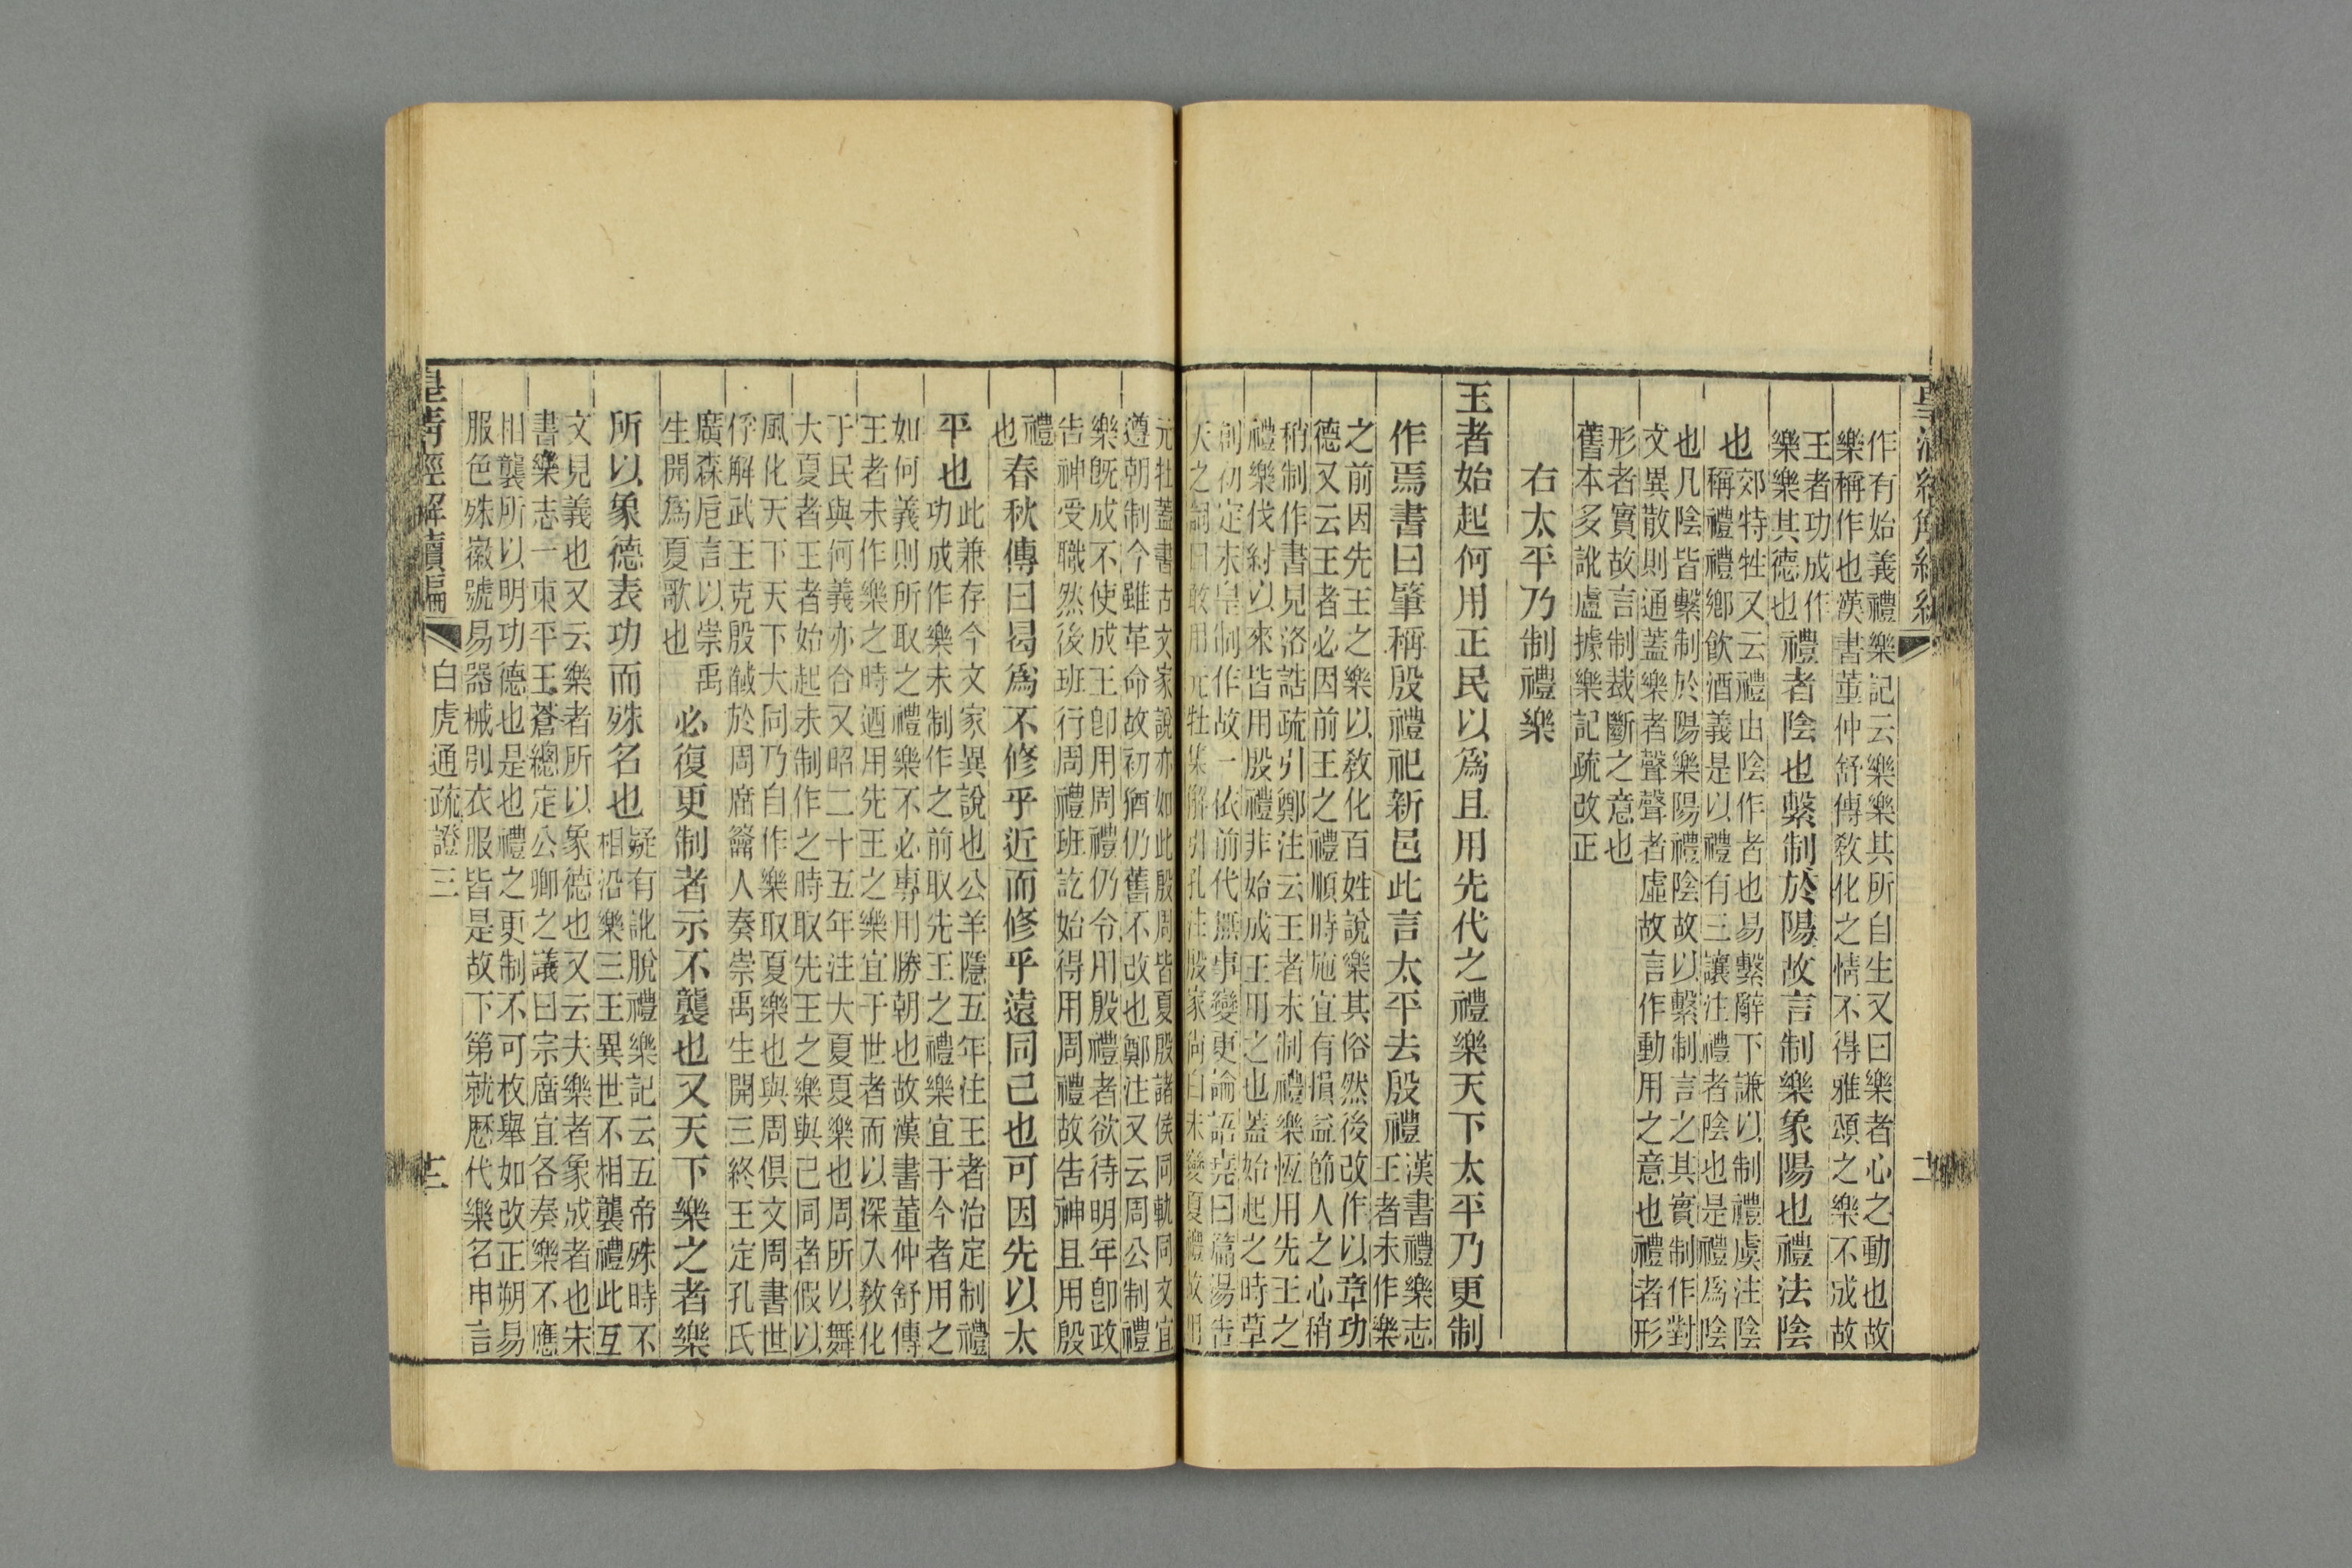 皇清經解續編
作有始義禮樂記云樂樂其所自生又曰樂者心之動也故
樂稱作也漢書董仲舒傳教化之情不得雅頌之樂不成故
王者功成作
樂樂其德也
禮者陰也繫制於陽故言制樂象陽也禮法陰
也
郊特牲又云禮由陰作者也易繫辭下謙以制禮虞注陰
稱禮禮鄉飲酒義是以禮有三讓注禮者陰也是禮為陰
也凡陰皆繫制於陽樂陽禮陰故以繫制言之其實制作對
文異散則通蓋樂者聲聲者虛故言作動用之意也禮者形
形者實故言制裁斷之意也
舊本多訛盧據樂記疏改正
右太平乃制禮樂
王者始起何用正民以為且用先代之禮樂天下太平乃更制
作焉書曰肇稱殷禮祀新邑此言太平去殷禮
漢書禮樂志
王者未作樂
之前因先王之樂以教化百姓說樂其俗然後改作以章功
德又云王者必因前王之禮順時施宜有損益節人之心稍
稍制作書見洛誥疏引鄭注云王者未制禮樂恆用先王之
禮樂伐紂以來皆用殷禮非始成王用之也蓋始起之時草
創初定未皇制作故一依前代無事變更論語堯曰篇湯告
天之詞曰敢用元牡集解引孔注殷家尚白未變夏禮故用
元牡蓋書古文家說亦如此殷周皆夏殷諸侯同軌同文宜
遵朝制今雖革命故初猶仍舊不改也鄭注又云周公制禮
樂既成不使成王卽用周禮仍令用殷禮者欲待明年卽政
告神受職然後班行周禮班訖始得用周禮故告神且用殷
禮
也
春秋傳曰曷為不修乎近而修乎遠同己也可因先以太
平也
此兼存今文家異說也公羊隱五年注王者治定制禮
功成作樂未制作之前取先王之禮樂宜于今者用之
如何義則所取之禮樂不必專用勝朝也故漢書董仲舒傳
王者未作樂之時迺用先王之樂宜于世者而以深入教化
于民與何義亦合又昭二十五年注大夏夏樂也周所以舞
大夏者王者始起未制作之時取先王之樂與己同者假以
風化天下天下大同乃自作樂取夏樂也與周俱文周書世
俘解武王克殷馘於周席籥人奏崇禹生開三終王定孔氏
廣森卮言以崇禹
生開為夏歌也
必復更制者示不襲也又天下樂之者樂
所以象德表功而殊名也
疑有訛脫禮樂記云五帝殊時不
相沿樂三王異世不相襲禮此互
文見義也又云樂者所以象德也又云夫樂者象成者也宋
書樂志一東平王蒼總定公卿之議曰宗廣宜各奏樂不應
相襲所以明功德也是也禮之更制不可枚舉如改正朔易
服色殊徽號易器械別衣服皆是故下第就歷代樂名申言
皇清經解續編 白虎通疏證三 十二